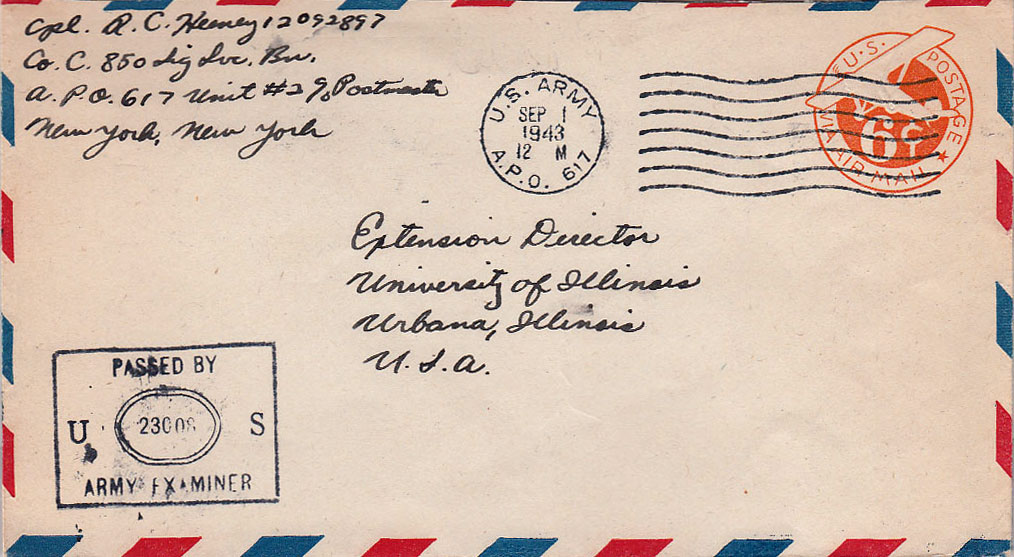 Cpl. R. C. Heeney 12092897
Co. C. 850 Sig Svc. Bn.
A.P.O. 617 Unit #2 % Postmaster
New York, New York
U.S. ARMY
SEP 1
1943
12 M
A.P.O. 617
U.S. POSTAGE
6¢
VIA AIR MAIL
Extension Director
University of Illinois
Urbana, Illinois
U.S.A.
PASSED BY
U 23008 S
ARMY EXAMINER